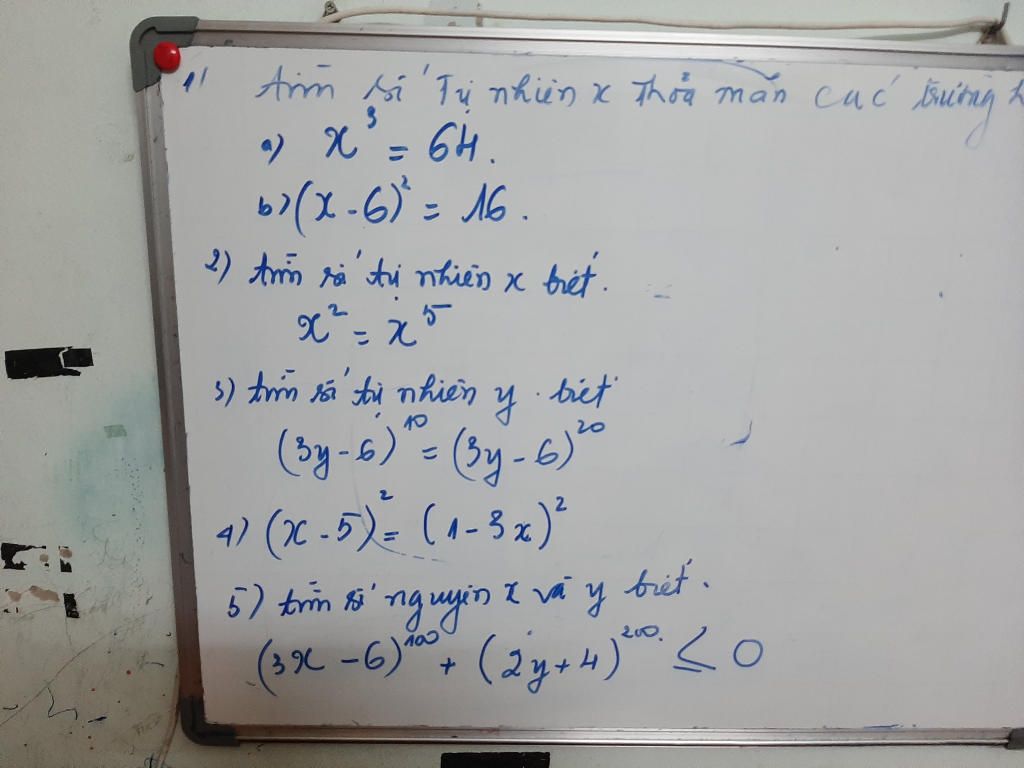 1) tìm số Tự nhiên x Thỏa mãn các trường
a) x³ = 64.
b) (x - 6)² = 16.
2) tìm số tự nhiên x biết.
x² = x⁵
3) tìm số tự nhiên y biết
(3y - 6)¹⁰ = (3y - 6)²⁰
4) (x - 5)² = (1 - 3x)²
5) tìm số nguyên x và y biết.
(3x - 6)¹⁰⁰ + (2y + 4)²⁰⁰ ≤ 0